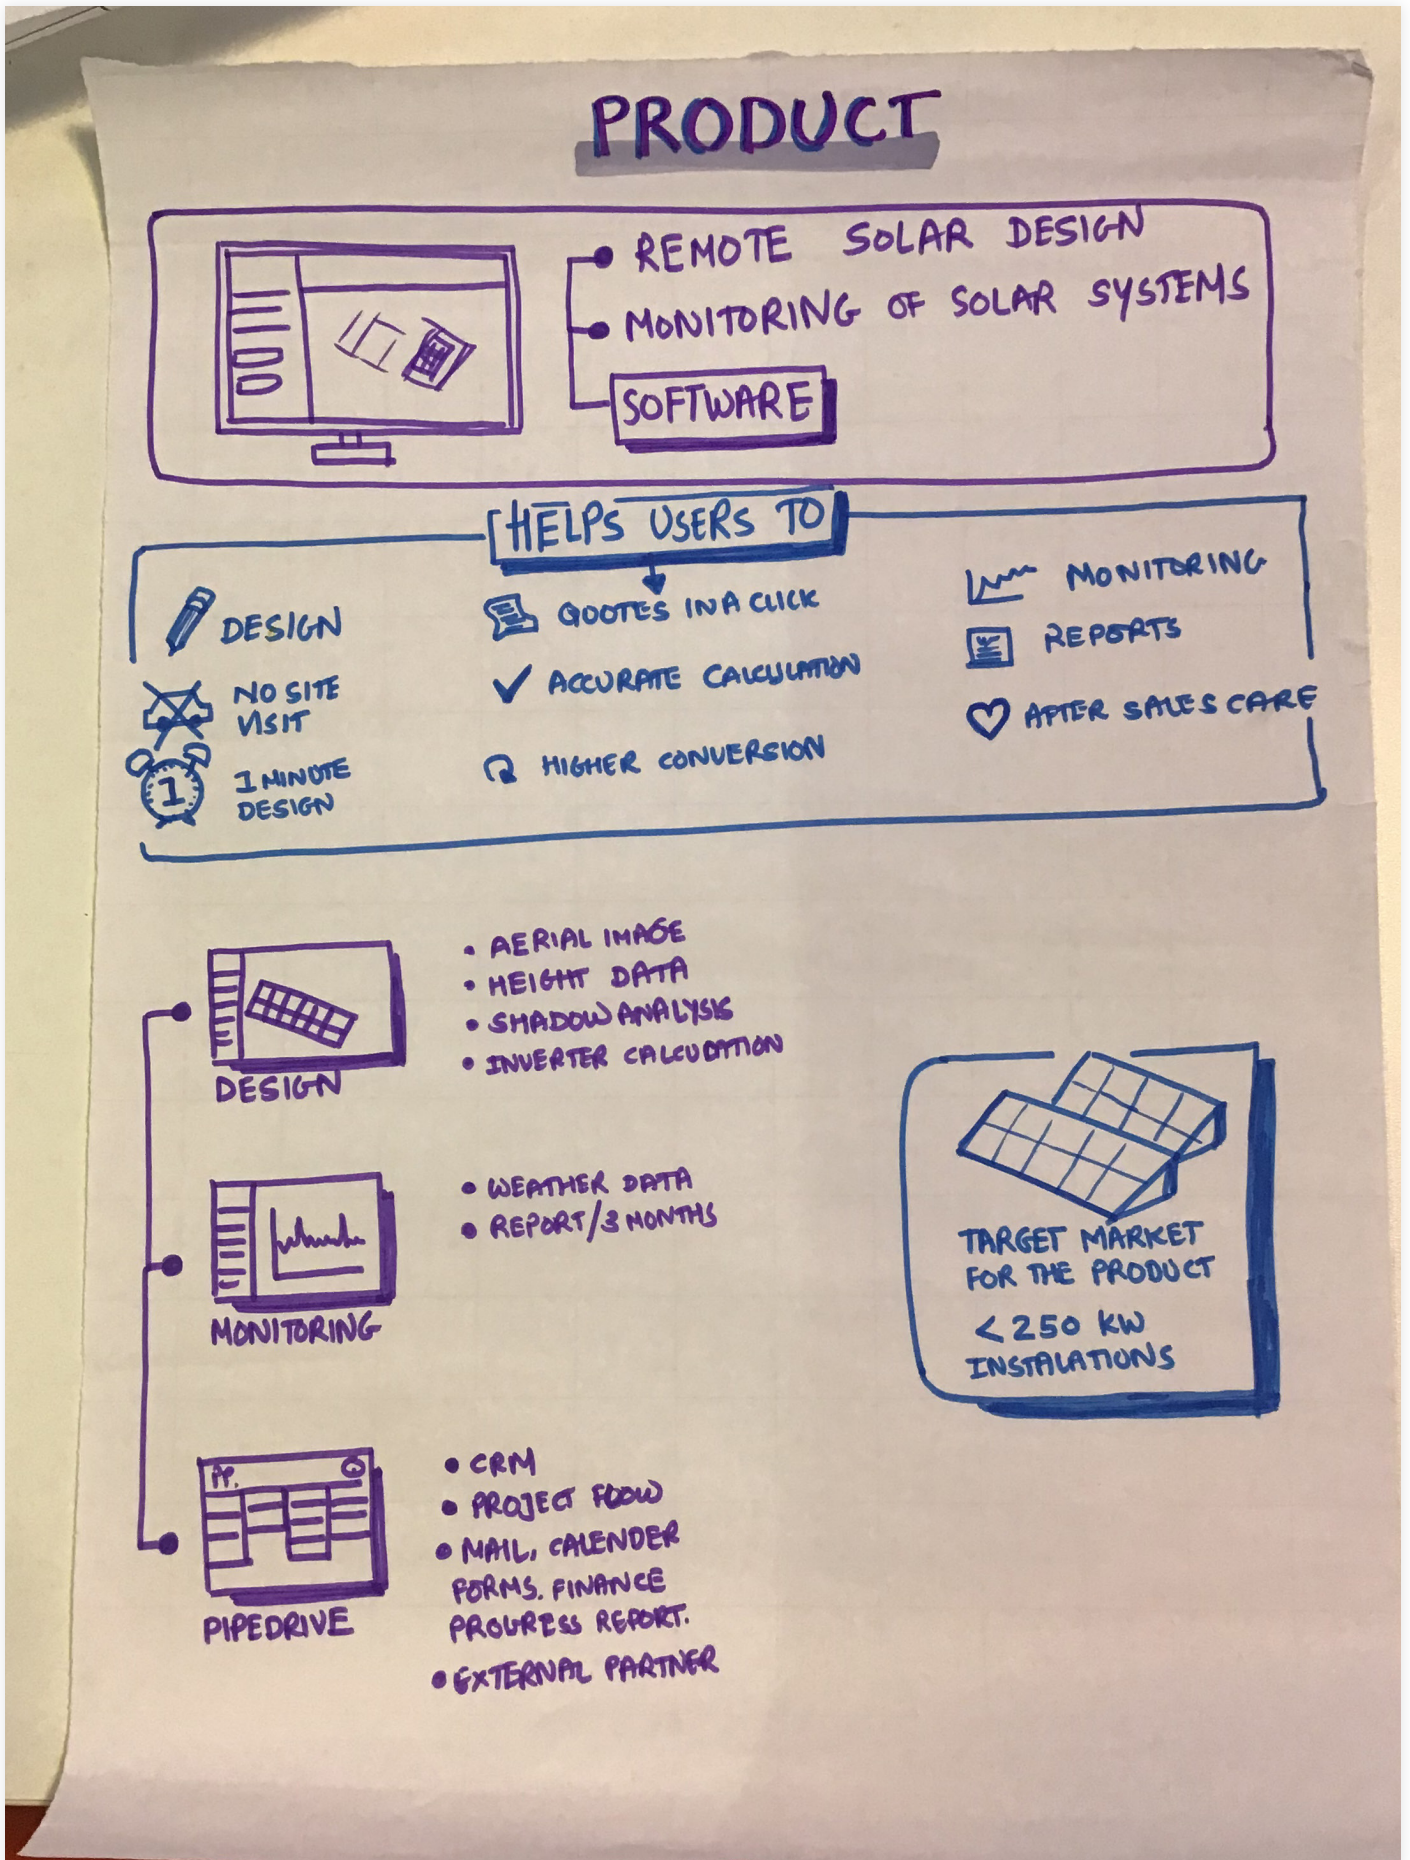 PRODUCT
REMOTE SOLAR DESIGN
MONITORING OF SOLAR SYSTEMS
SOFTWARE
HELPS USERS TO
DESIGN
NO SITE
VISIT
1
1 MINUTE
DESIGN
QUOTES IN A CLICK
ACCURATE CALCULATION
HIGHER CONVERSION
MONITORING
REPORTS
AFTER SALES CARE
DESIGN
• AERIAL IMAGE
• HEIGHT DATA
• SHADOW ANALYSIS
• INVERTER CALCULATION
MONITORING
• WEATHER DATA
• REPORT/3 MONTHS
PP.
PIPEDRIVE
• CRM
• PROJECT FLOW
• MAIL, CALENDER
FORMS. FINANCE
PROGRESS REPORT.
• EXTERNAL PARTNER
TARGET MARKET
FOR THE PRODUCT
< 250 KW
INSTALATIONS